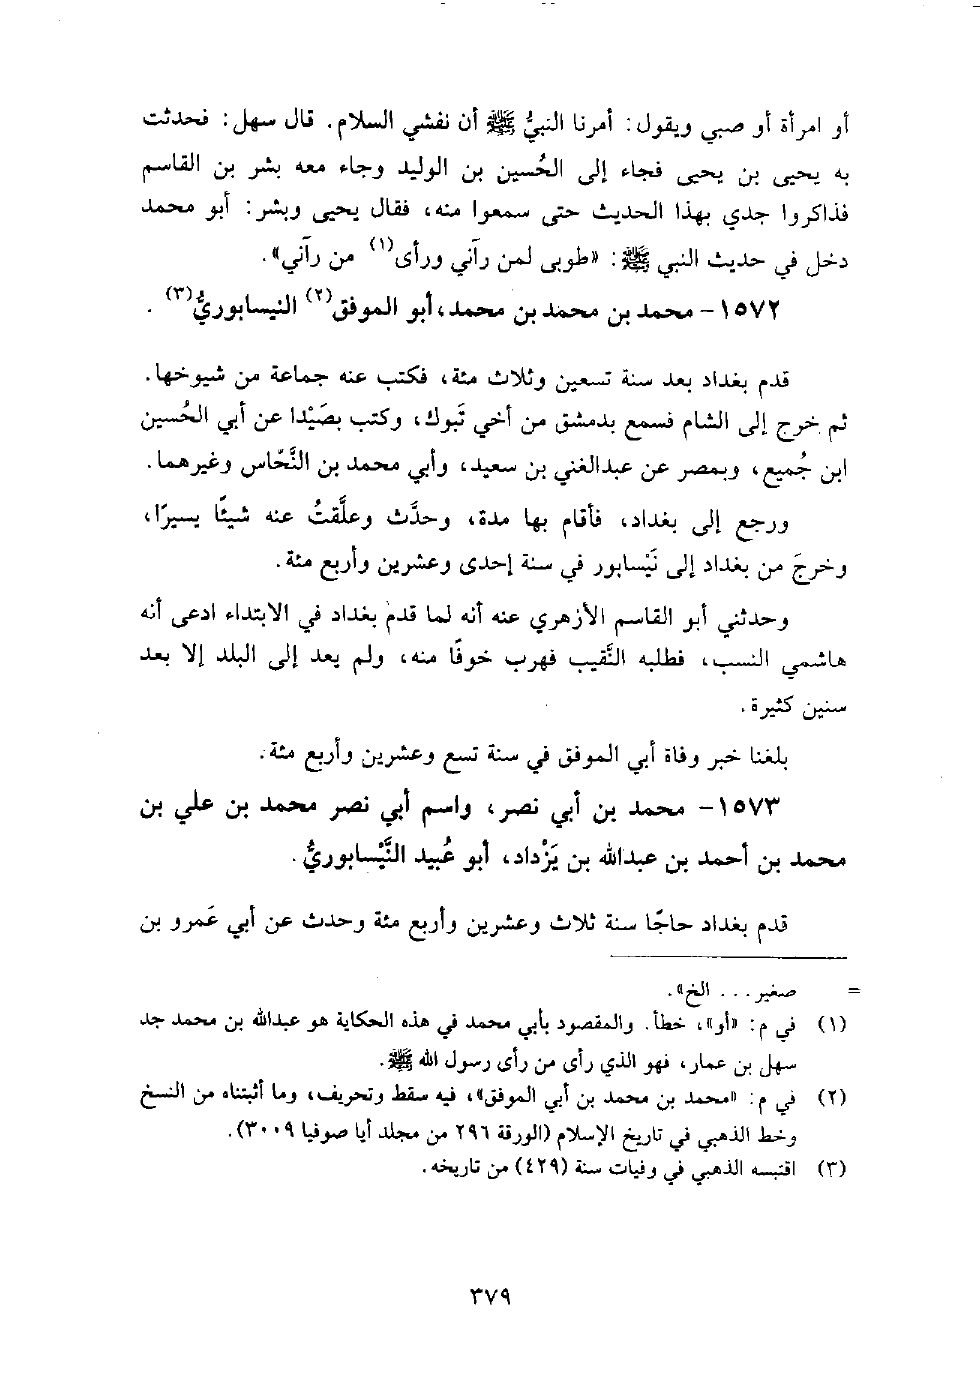 أو امرأة أو صبي ويقول: أمرنا النبيُّ ﷺ أن نفشي السلام. قال سهل: فحدثت
به يحيى بن يحيى فجاء إلى الحُسين بن الوليد وجاء معه بشر بن القاسم
فذاكروا جدي بهذا الحديث حتى سمعوا منه، فقال يحيى وبشر: أبو محمد
دخل في حديث النبي ﷺ: «طوبى لمن رآني ورأى(١) من رآني».
١٥٧٢- محمد بن محمد بن محمد، أبو الموفق(٢) النيسابوريُّ(٣).
قدم بغداد بعد سنة تسعين وثلاث مئة، فكتب عنه جماعة من شيوخها.
ثم خرج إلى الشام فسمع بدمشق من أخي تَبوك، وكتب بصَيْدا عن أبي الحُسين
ابن جُميع، وبمصر عن عبدالغني بن سعيد، وأبي محمد بن النَّحّاس وغيرهما.
ورجع إلى بغداد، فأقام بها مدة، وحدَّث وعلَّقتُ عنه شيئًا يسيرًا،
وخرجَ من بغداد إلى نَيْسابور في سنة إحدى وعشرين وأربع مئة.
وحدثني أبو القاسم الأزهري عنه أنه لما قدم بغداد في الابتداء ادعى أنه
هاشمي النسب، فطلبه النَّقيب فهرب خوفًا منه، ولم يعد إلى البلد إلا بعد
سنين كثيرة.
بلغنا خبر وفاة أبي الموفق في سنة تسع وعشرين وأربع مئة.
١٥٧٣- محمد بن أبي نصر، واسم أبي نصر محمد بن علي بن
محمد بن أحمد بن عبدالله بن يَزْداد، أبو عُبيد النَّيْسابوريُّ.
قدم بغداد حاجًا سنة ثلاث وعشرين وأربع مئة وحدث عن أبي عَمرو بن
= صغير... الخ».
(١) في م: «أو»، خطأ. والمقصود بأبي محمد في هذه الحكاية هو عبدالله بن محمد جد
سهل بن عمار، فهو الذي رأى من رأى رسول الله ﷺ.
(٢) في م: «محمد بن محمد بن أبي الموفق»، فيه سقط وتحريف، وما أثبتناه من النسخ
وخط الذهبي في تاريخ الإسلام (الورقة ٢٩٦ من مجلد أيا صوفيا ٣٠٠٩).
(٣) اقتبسه الذهبي في وفيات سنة (٤٢٩) من تاريخه.
٣٧٩